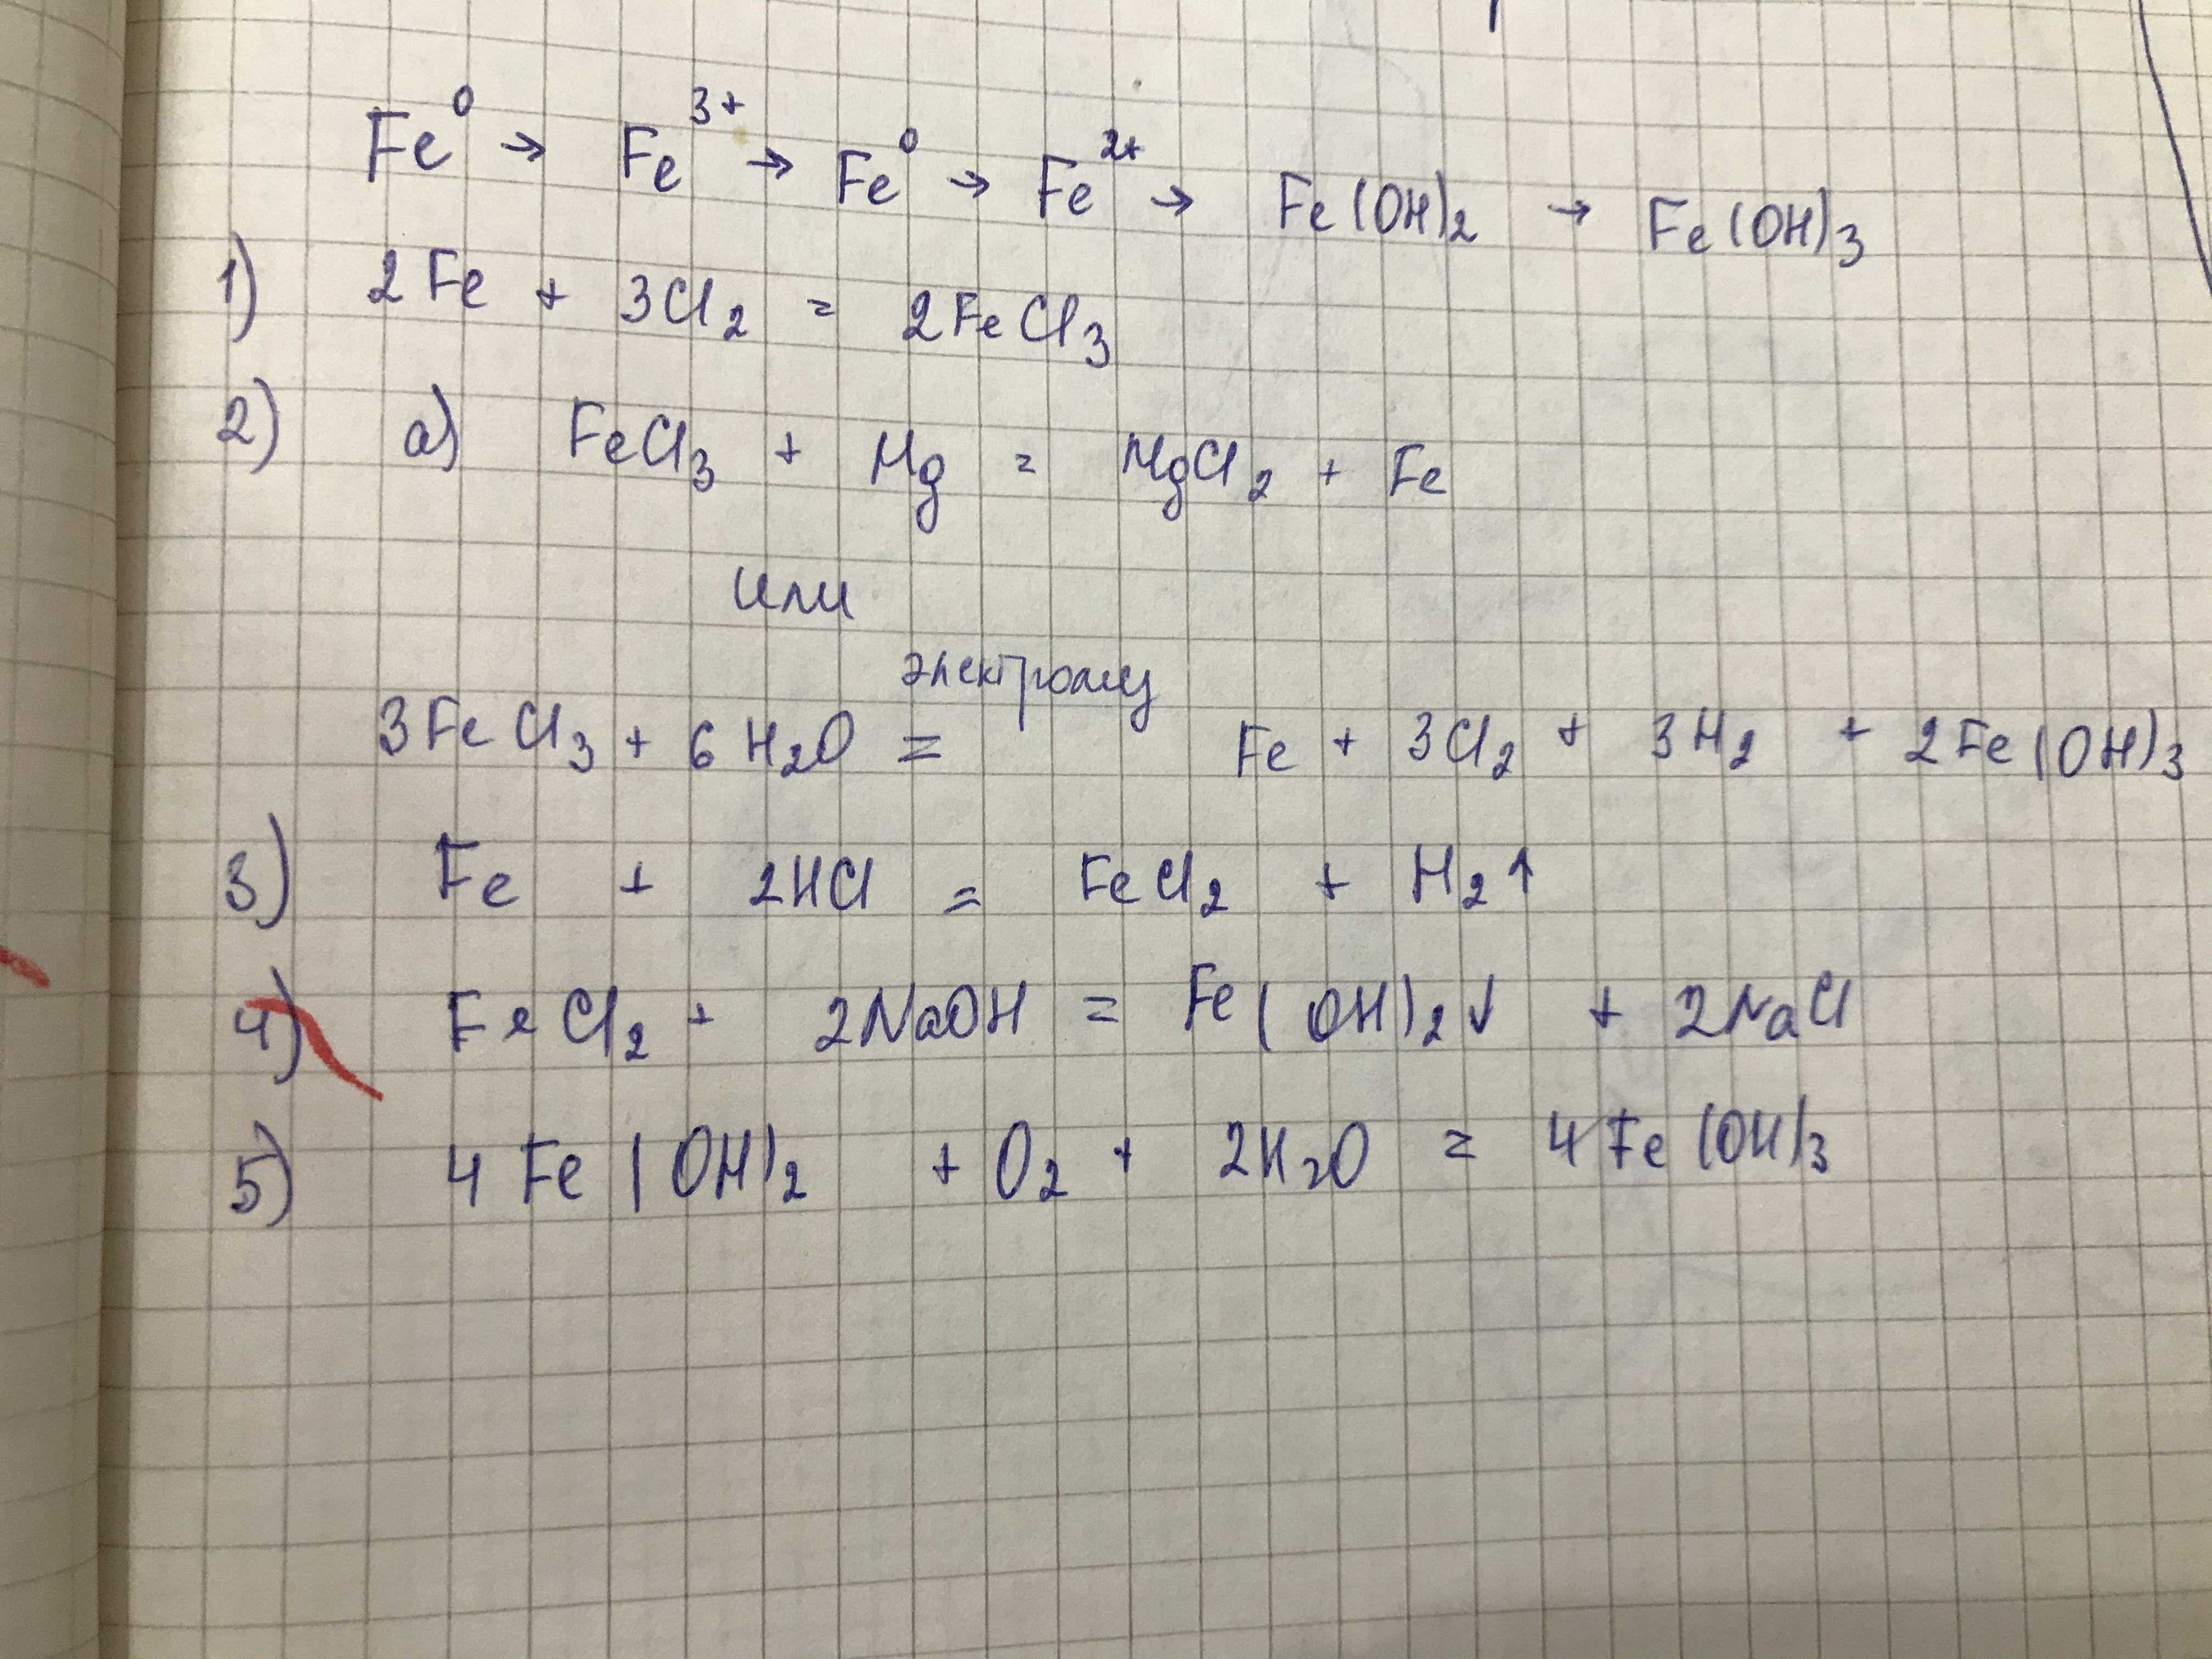 Fe⁰ → Fe³⁺ → Fe⁰ → Fe²⁺ → Fe(OH)₂ → Fe(OH)₃
1) 2Fe + 3Cl₂ = 2FeCl₃
2) а) FeCl₃ + Mg = MgCl₂ + Fe
или
электролиз
3FeCl₃ + 6H₂O = Fe + 3Cl₂ + 3H₂ + 2Fe(OH)₃
3) Fe + 2HCl = FeCl₂ + H₂↑
4) FeCl₂ + 2NaOH = Fe(OH)₂↓ + 2NaCl
5) 4Fe(OH)₂ + O₂ + 2H₂O = 4Fe(OH)₃